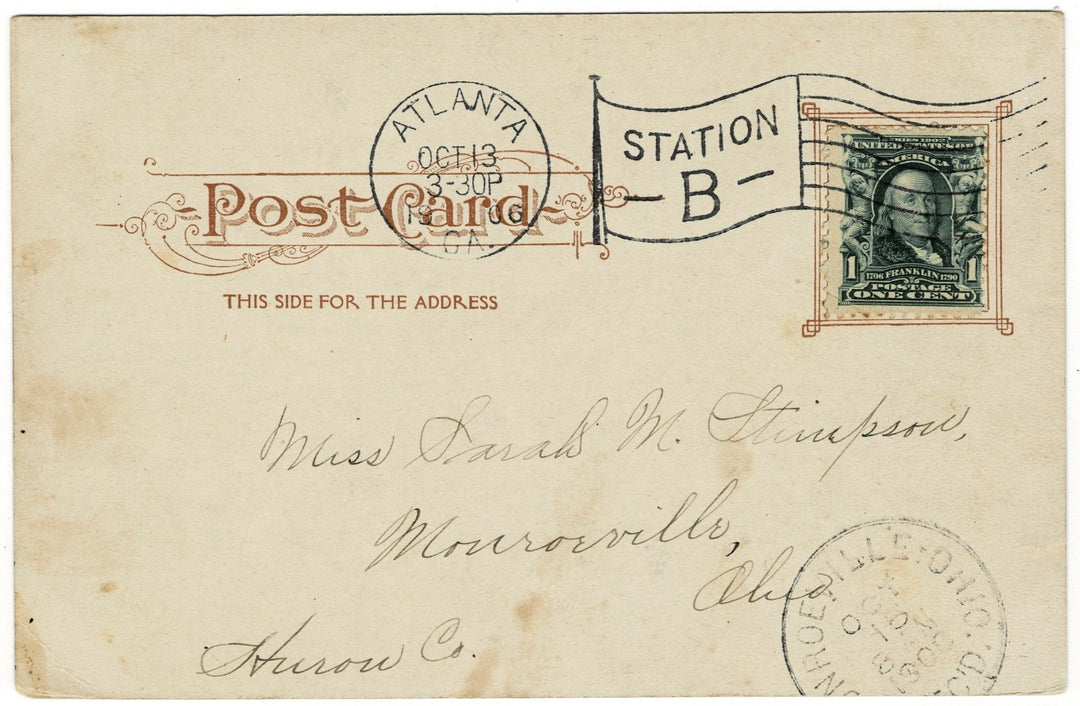 ATLANTA
OCT 13
3-30P
19 06
GA.
STATION
B
Post Card
THIS SIDE FOR THE ADDRESS
SERIES 1902
UNITED STATES OF
AMERICA
1 1
1706 FRANKLIN 1790
POSTAGE
ONE CENT
Miss Sarah M. Stimpson,
Monroeville,
Ohio
Huron Co.
OHIO.
REC'D.